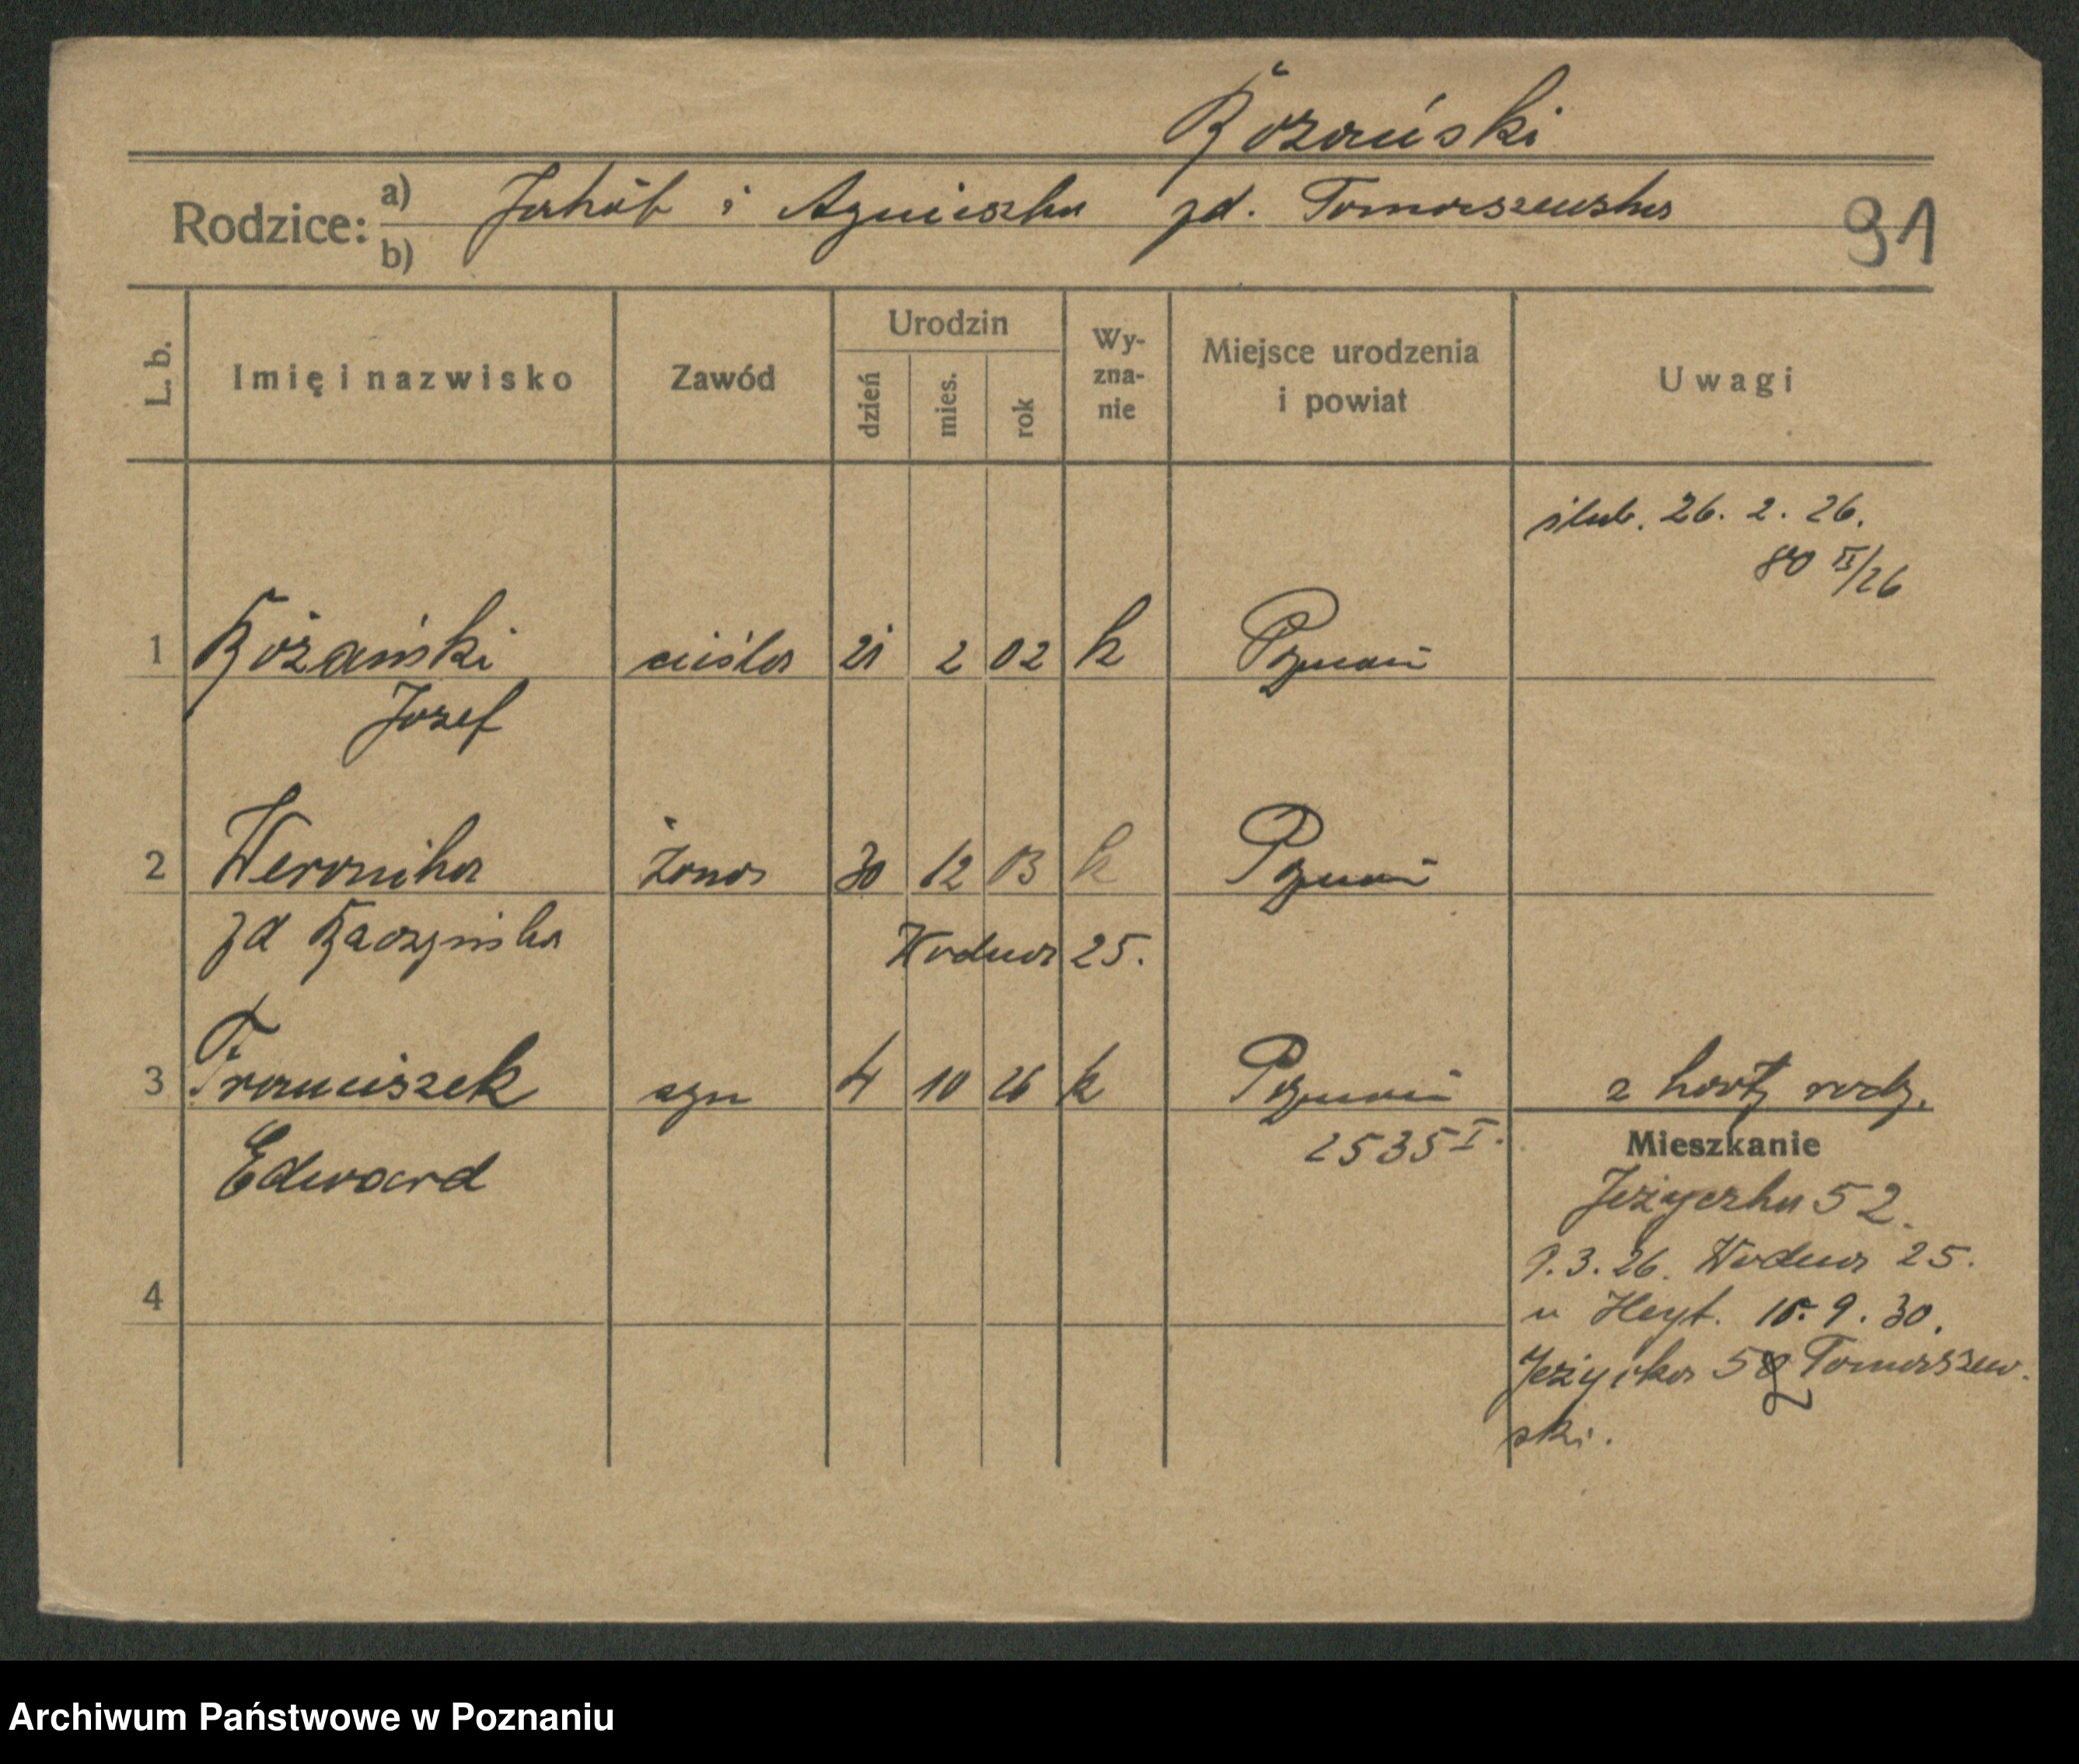 Różański
Rodzice: a) Jakób i Agnieszka zd. Tomaszewska
b)
91
L. b.
Imię i nazwisko
Zawód
Urodzin
dzień
mies.
rok
Wy-
zna-
nie
Miejsce urodzenia
i powiat
Uwagi
ślub. 26. 2. 26.
80 II/26
1 Różański cieśla 21 2 02 k Poznań
Jozef
2 Weronika żona 30 12 03 k Poznań
zd Raczyńska Wodna 25.
3 Franciszek syn 4 10 26 k Poznań z karty rodz.
Edward 2535 I.
Mieszkanie
Jeżycka 52.
9.3.26. Wodna 25.
4
u Heyt. 15. 9. 30.
Jeżycka 52 Tomaszew-
ski.
Archiwum Państwowe w Poznaniu